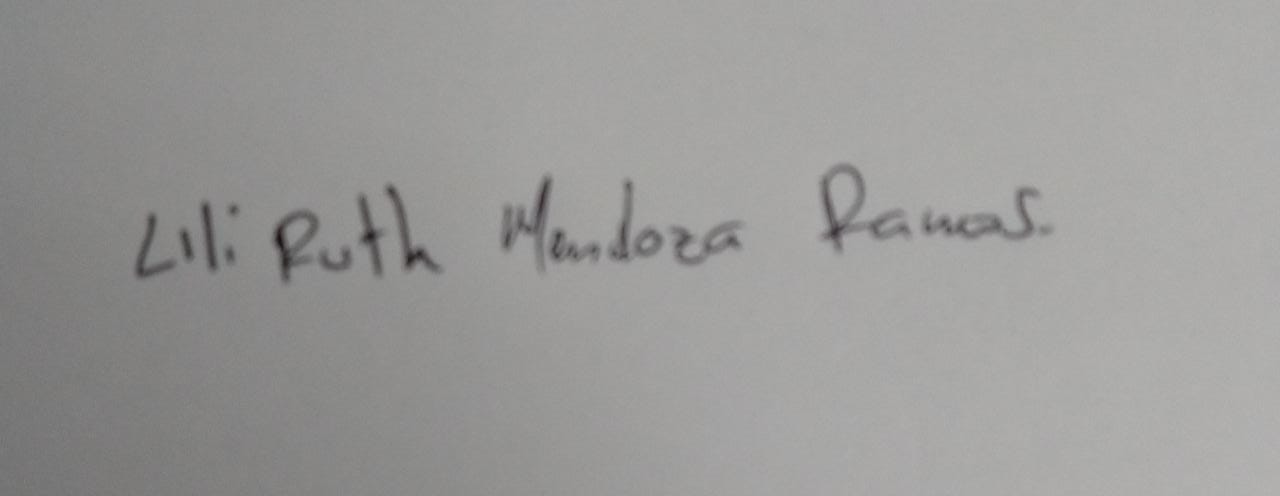 Lili Ruth Mendoza Ramos.